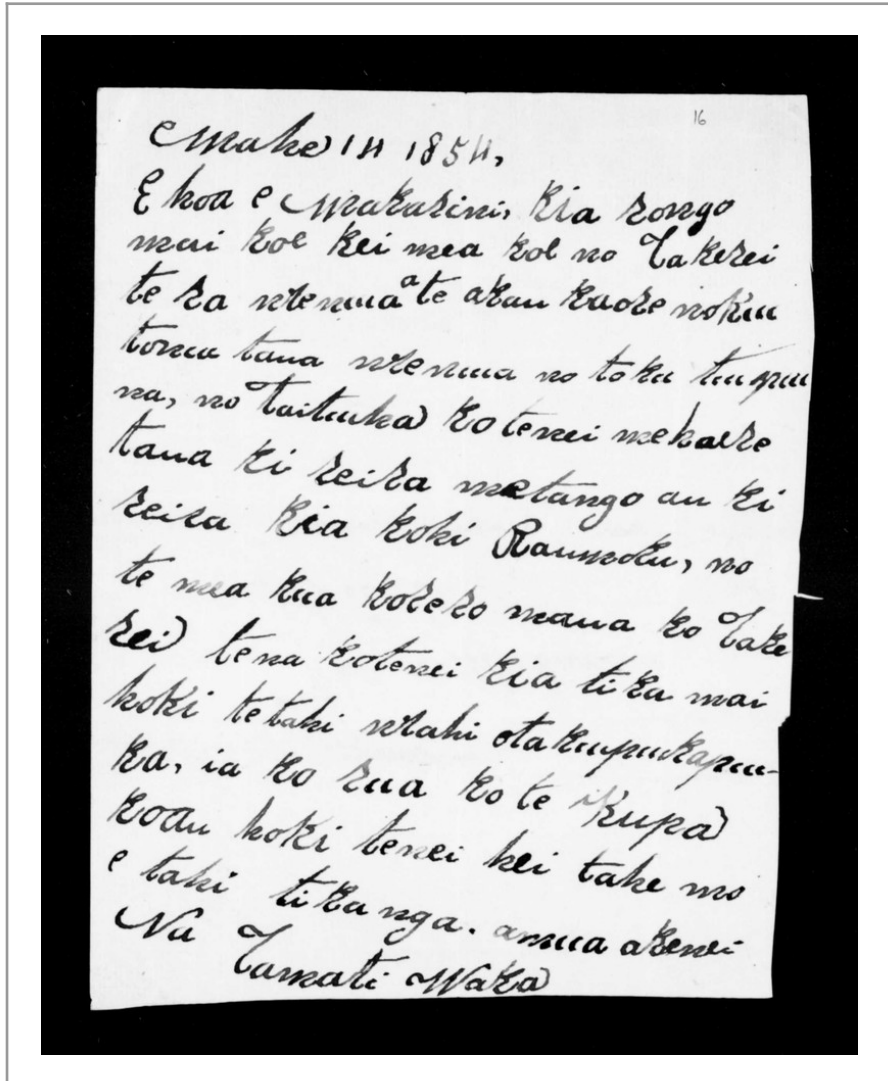 16
Maehe 14 1854,
E hoa e Makarini, kia rongo
mai koe kei mea koe no Takerei
te ra wlenuua a te akau kaore nokuu
tonu taua wlenuua no toku tuupuu
na, no Taituha ko tenei me haere
taua ki reira me tango au ki
reira kia hoki Raumoku, no
te mea kua korero maua ko Take
rei tena kotenei kia tika mai
hoki te tahi wlahi otakuupuukapuu-
ka, ia ko rua ko te Kupa
koau hoki tenei hei take mo
e tahi tikanga. amua akenei
Na
Tamati Waka